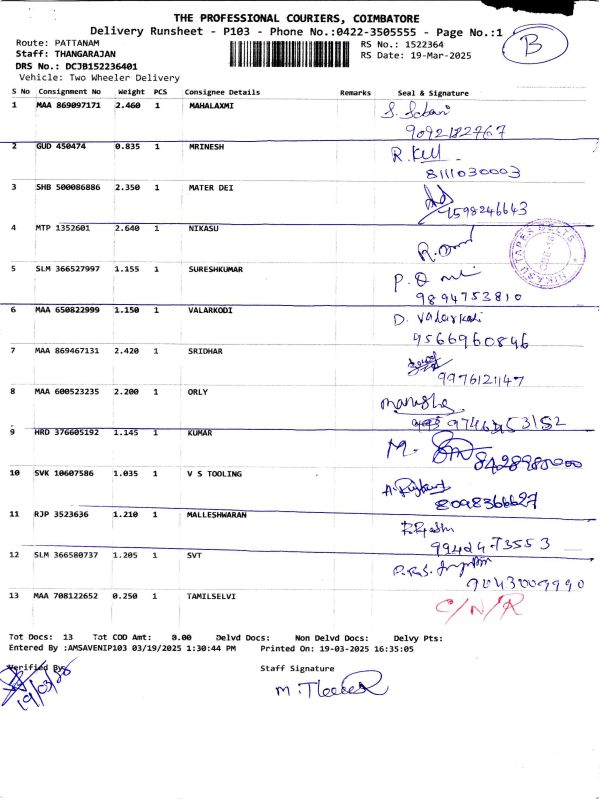 THE PROFESSIONAL COURIERS, COIMBATORE
Delivery Runsheet - P103 - Phone No.:0422-3505555 - Page No.:1
B
Route: PATTANAM RS No.: 1522364
Staff: THANGARAJAN RS Date: 19-Mar-2025
DRS No.: DCJB152236401
Vehicle: Two Wheeler Delivery
S No Consignment No Weight PCS Consignee Details Remarks Seal & Signature
1 MAA 869097171 2.460 1 MAHALAXMI
9092182767
2 GUD 450474 0.835 1 MRINESH
8111030003
3 SHB 500086886 2.350 1 MATER DEI
7598246643
4 MTP 1352601 2.640 1 NIKASU
NIKASU TAPES
5 SLM 366527997 1.155 1 SURESHKUMAR
9894753810
6 MAA 650822999 1.150 1 VALARKODI D. Valarkodi
9566960846
7 MAA 869467131 2.420 1 SRIDHAR
9976121147
8 MAA 600523235 2.200 1 ORLY
9 HRD 376605192 1.145 1 KUMAR
10 SVK 10607586 1.035 1 V S TOOLING
8098366627
11 RJP 3523636 1.210 1 MALLESHWARAN
12 SLM 366580737 1.205 1 SVT
9043009990
13 MAA 708122652 0.250 1 TAMILSELVI C/N/R
Tot Docs: 13 Tot COD Amt: 0.00 Delvd Docs: Non Delvd Docs: Delvy Pts:
Entered By :AMSAVENIP103 03/19/2025 1:30:44 PM Printed On: 19-03-2025 16:35:05
Verified By Staff Signature